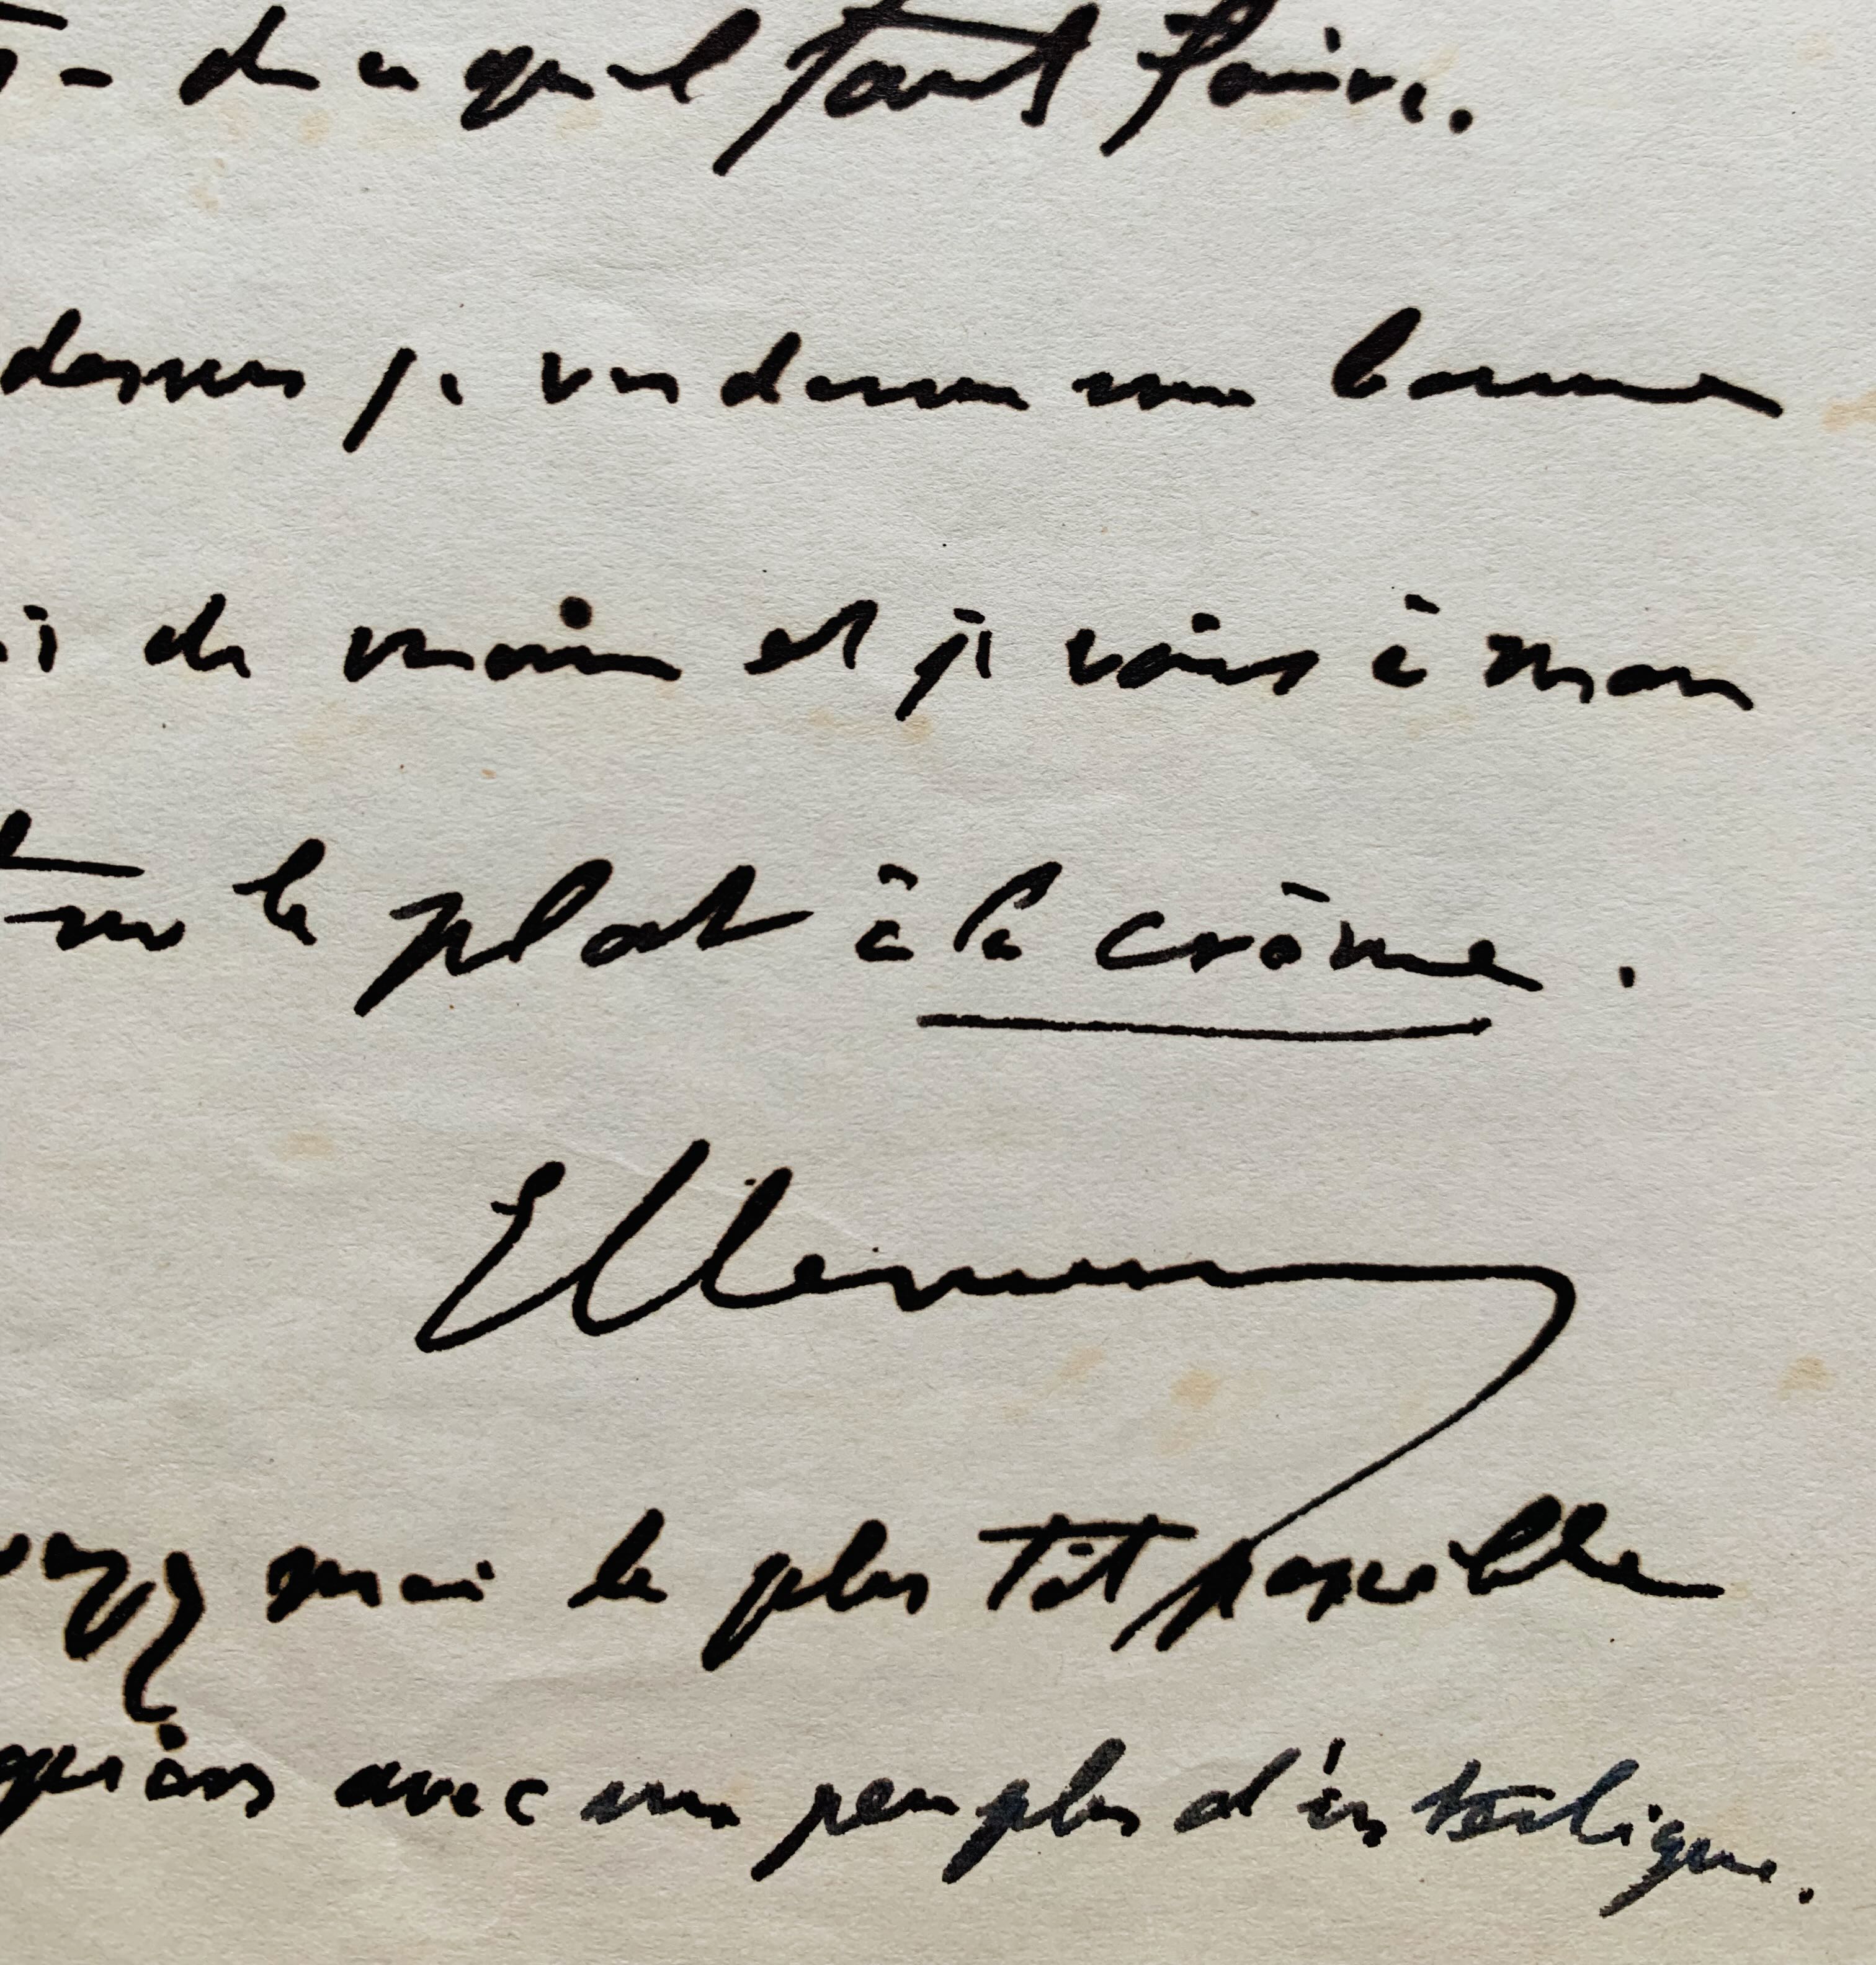 - de ce qu'il faut faire.
dessus je vous donne une bonne
de main et je vais à mon
le plat à la crème.
moi le plus tôt possible
avec un peu plus d'interligne.